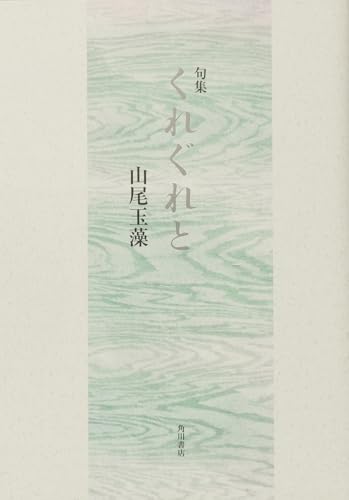 句集
くれぐれと
山尾玉藻
角川書店